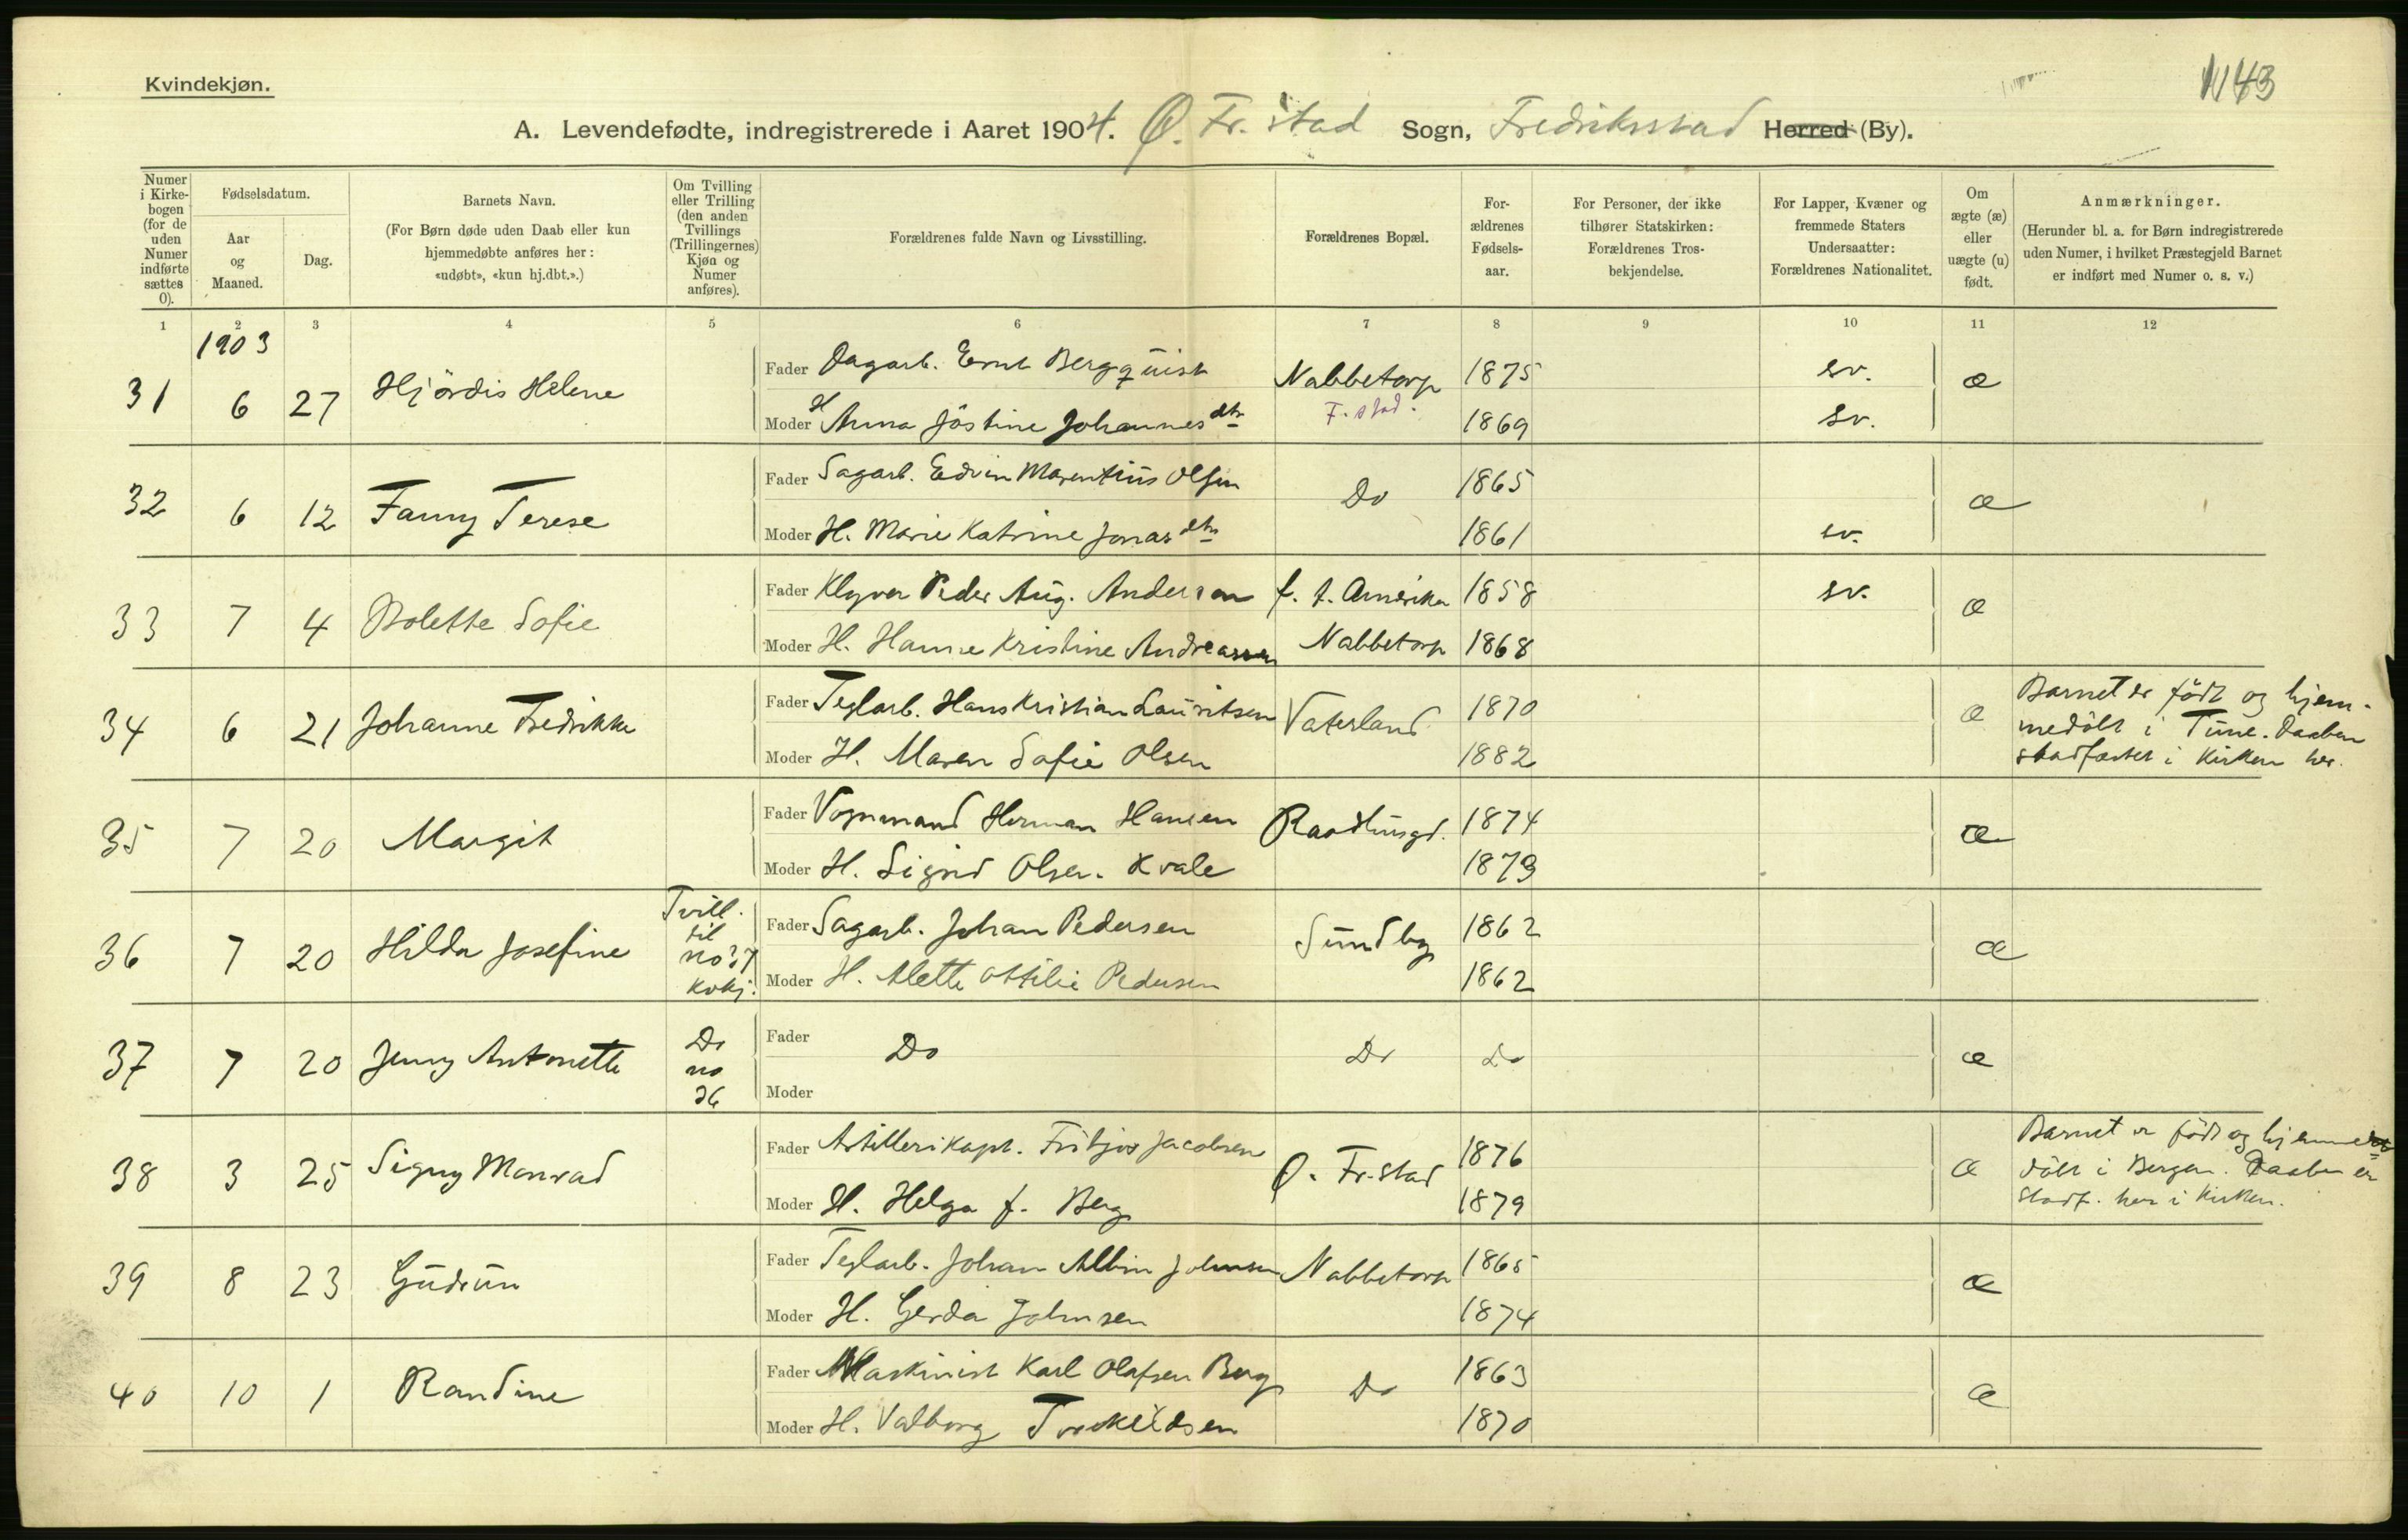 Kvindekjøn.
1143
A. Levendefødte, indregistrerede i Aaret 1904. Ø. Fr.stad Sogn, Fredriksstad Herred (By).
Numer i Kirkebogen (for de uden Numer indførte sættes 0).
Fødselsdatum.
Aar og Maaned.
Dag.
Barnets Navn.
(For Børn døde uden Daab eller kun hjemmedøbte anføres her: «udøbt», «kun hj.dbt.».)
Om Tvilling eller Trilling (den anden Tvillings (Trillingernes) Kjøn og Numer anføres).
Forældrenes fulde Navn og Livsstilling.
Forældrenes Bopæl.
Forældrenes Fødselsaar.
For Personer, der ikke tilhører Statskirken: Forældrenes Trosbekjendelse.
For Lapper, Kvæner og fremmede Staters Undersaatter: Forældrenes Nationalitet.
Om ægte (æ) eller uægte (u) født.
Anmærkninger.
(Herunder bl. a. for Børn indregistrerede uden Numer, i hvilket Præstegjeld Barnet er indført med Numer o. s. v.)
1 2 3 4 5 6 7 8 9 10 11 12
1903
31 6 27 Hjördis Helene Fader Dagarb. Ernst Bergquist Nabbetorp 1875 sv. æ
F.stad. Moder H Anna Jöstine Johannesdtr 1869 sv.
32 6 12 Fanny Terese Fader Sagarb. Edvin Marentius Olsen Do 1865 æ
Moder H. Marie Katrine Jonasdtr 1861 sv.
33 7 4 Bolette Sofie Fader Klyver Peder Aug. Anderson f. t. Amerika 1858 sv. æ
Moder H. Hanne Kristine Andreassen Nabbetorp 1868
34 6 21 Johanne Fredrikke Fader Teglarb. Hans Kristian Lauritsen Vaterland 1870 æ Barnet er født og hjem-
medöbt i Tune. Daaben
Moder H. Maren Sofie Olsen 1882 stadfæstet i Kirken her.
35 7 20 Margit Fader Vognmand Herman Hansen Raadhusgd. 1874 æ
Moder H. Sigrid Olsen. Kvale 1879
36 7 20 Hilda Josefine Tvill. til no 37 kvkj. Fader Sagarb. Johan Pedersen Sundby 1862 æ
Moder H. Alette Ottilie Pedersen 1862
37 7 20 Jenny Antonette Do no 36 Fader Do Do Do æ
Moder
38 3 25 Signy Monrad Fader Artillerikapt. Fritjov Jacobsen Ø. Fr.stad 1876 æ Barnet er født og hjemme
döbt i Bergen. Daaben er
Moder H. Helga f. Berg 1879 stadf. her i Kirken.
39 8 23 Gudrun Fader Teglarb. Johan Albin Johnsen Nabbetorp 1865 æ
Moder H. Gerda Johnsen 1874
40 10 1 Randine Fader Maskinist Karl Olafsen Berg Do 1863 æ
Moder H. Valborg Torkildsen 1870